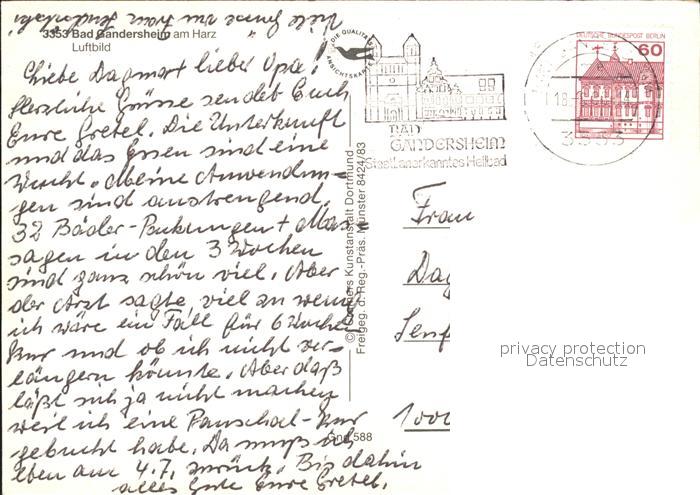 Viele Grüsse an Frau
3353 Bad Gandersheim am Harz
Luftbild
Liebe Dagmar + lieber Opa!
Herzliche Grüsse sendet Euch
Eure Gretel. Die Unterkunft
und das Essen sind eine
Wucht. Meine Anwendun-
gen sind anstrengend.
32 Bäder-Packungen + Mas-
sagen in den 3 Wochen
sind ganz schön viel. Aber
der Arzt sagte viel zu wenig
ich wäre ein Fall für 6 Wochen
Kur und ob ich nicht ver-
längern könnte. Aber daß
läßt sich ja nicht machen
weil ich eine Pauschal-Kur
gebucht habe. Da muß ich
eben am 4.7. zurück. Bis dahin
alles Gute Eure Gretel.
DIE QUALITÄTS
ANSICHTSKARTE
BAD
GANDERSHEIM
Staatl. anerkanntes Heilbad
DEUTSCHE BUNDESPOST BERLIN
60
18.
3353
© Cramers Kunstanstalt Dortmund
Freigeg. d. Reg.-Präs. Münster 8424/83
Gnd 588
Frau
Dag
Senf
1000
privacy protection
Datenschutz